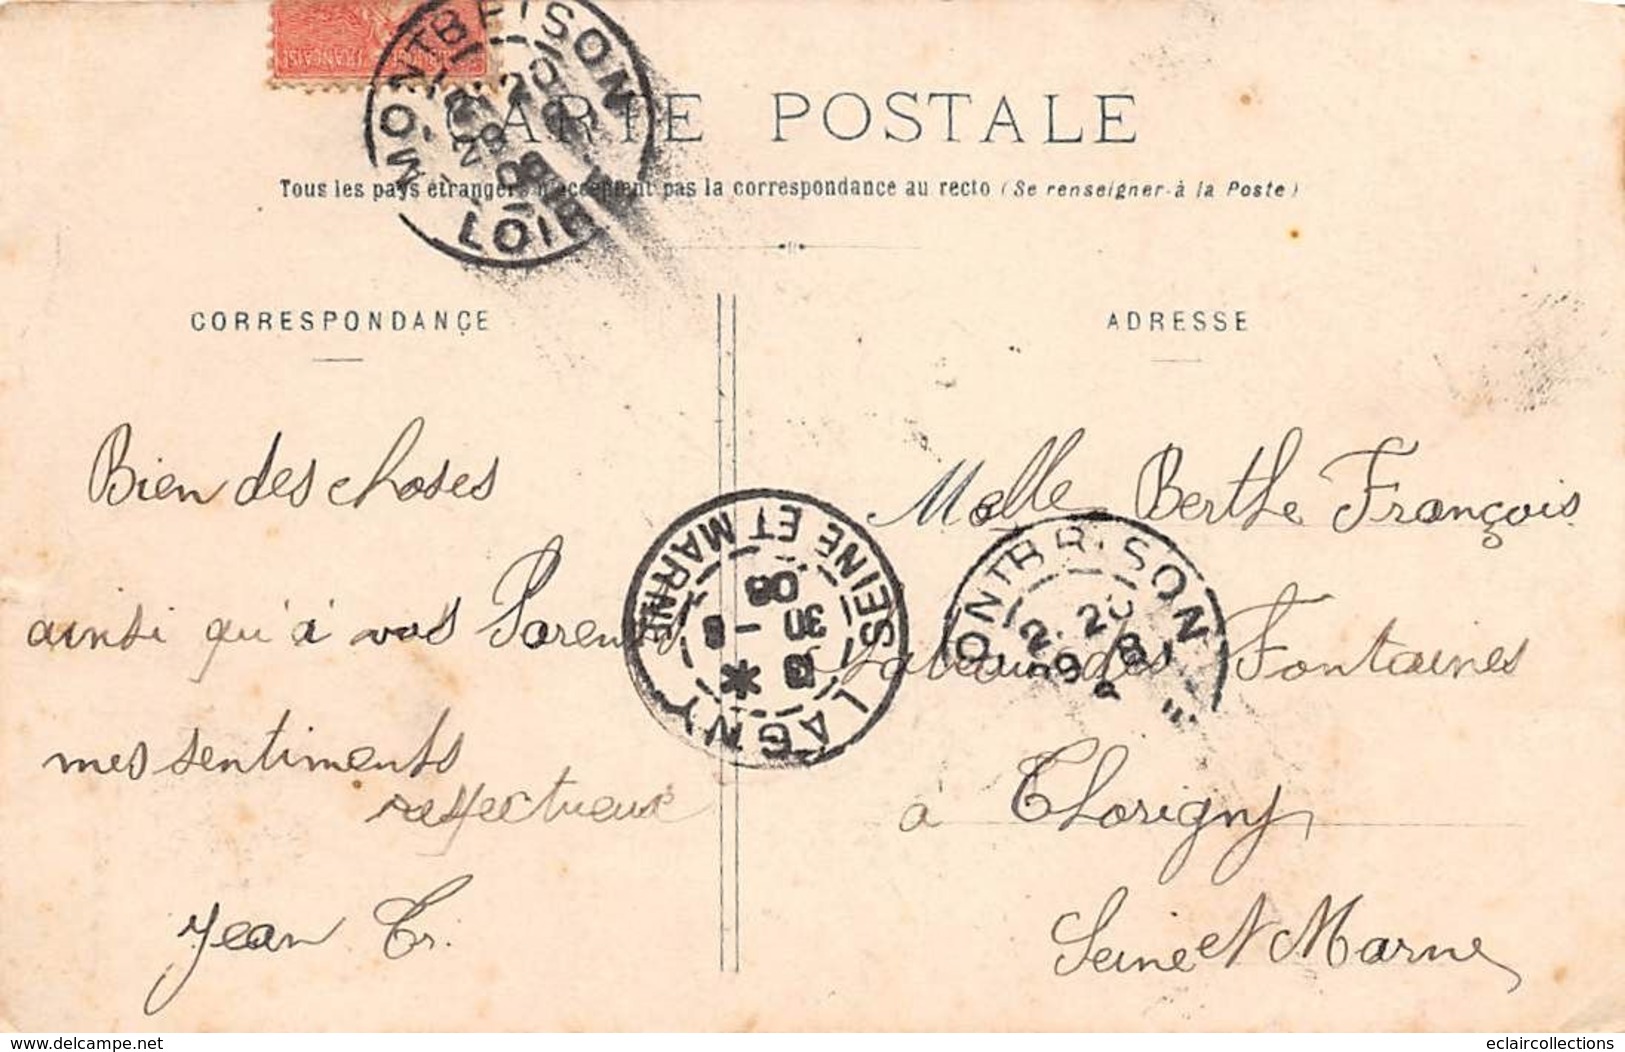 FRANÇAISE
MONTBRISON
20
28 8
08
LOIRE
CARTE POSTALE
Tous les pays étrangers n'acceptent pas la correspondance au recto (Se renseigner à la Poste)
CORRESPONDANCE
ADRESSE
Bien des choses
ainsi qu'à vos Parents
mes sentiments
respectueux
Jean Tr.
LAGNY
SEINE ET MARNE
30 - 8
08
MONTBRISON
Melle Berthe François
des Fontaines
à Thorigny
Seine et Marne
www.delcampe.net
eclaircollections